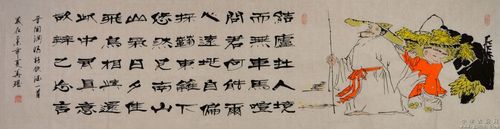 結廬在人境
而無車馬喧
問君何能爾
心遠地自偏
採菊東籬下
悠然見南山
山氣日夕佳
飛鳥相與還
此中有真意
欲辨已忘言